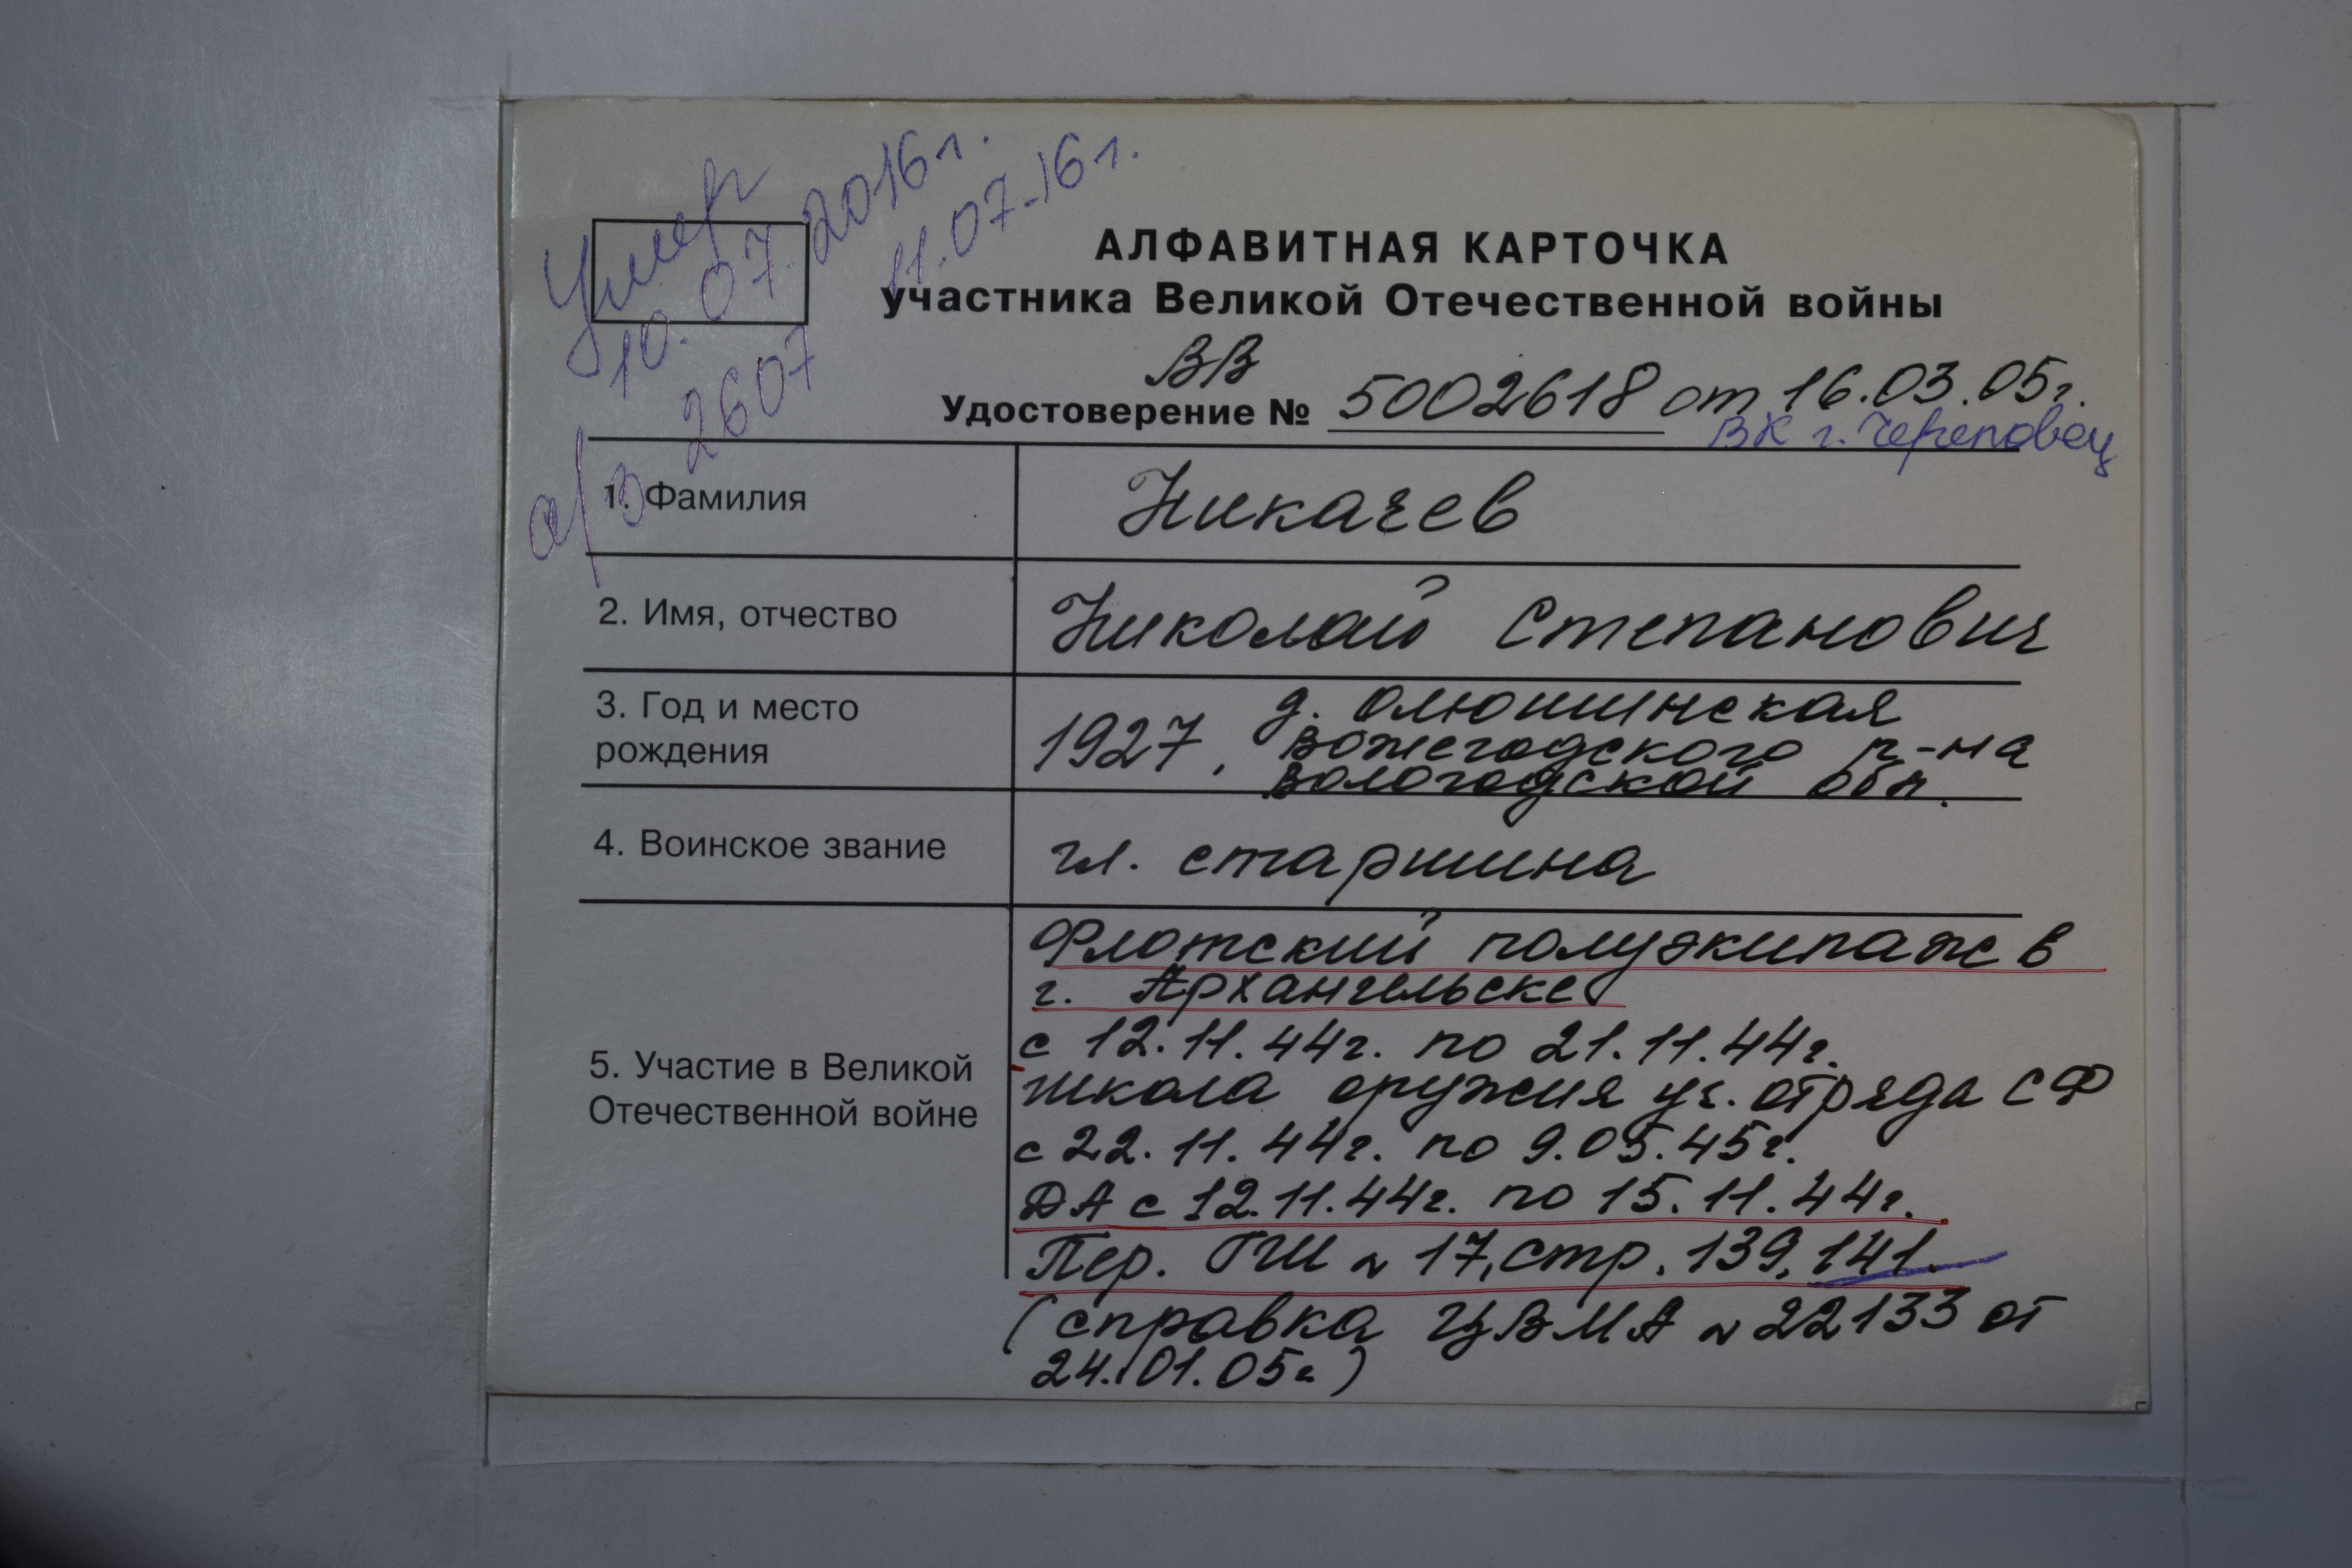 Умер
10.07.2016г.
11.07-16г.
а/з 2607
АЛФАВИТНАЯ КАРТОЧКА
участника Великой Отечественной войны
ВВ
Удостоверение № 5002618 от 16.03.05г.
ВК г. Череповец
1. Фамилия
Никачев
2. Имя, отчество
Николай Степанович
3. Год и место
рождения
1927, д. Олюшинская
Вожегодского р-на
Вологодской обл.
4. Воинское звание
гл. старшина
5. Участие в Великой
Отечественной войне
Флотский полуэкипаж в
г. Архангельске
с 12.11.44г. по 21.11.44г.
школа оружия уч. отряда СФ
с 22.11.44г. по 9.05.45г.
ДА с 12.11.44г. по 15.11.44г.
Пер. ГШ № 17, стр. 139, 141.
(справка ЦВМА № 22133 от
24.01.05г)